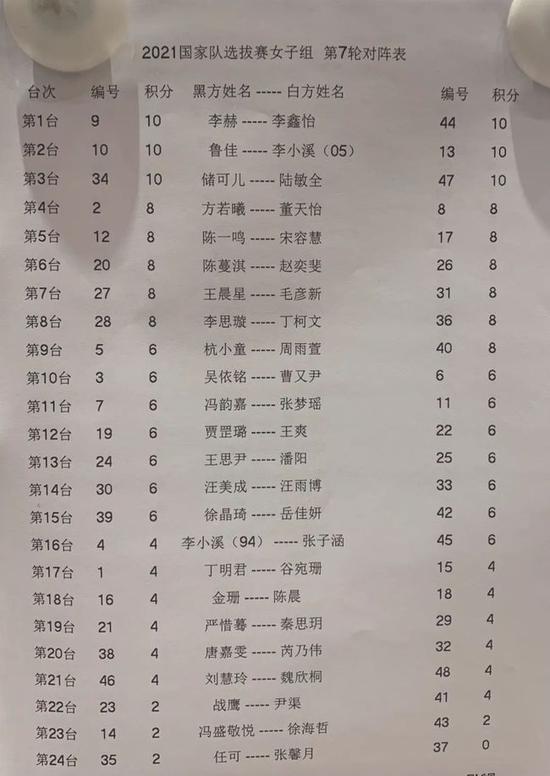 2021国家队选拔赛女子组 第7轮对阵表
台次 编号 积分 黑方姓名 ----- 白方姓名 编号 积分
第1台 9 10 李赫 ----- 李鑫怡 44 10
第2台 10 10 鲁佳 ----- 李小溪（05） 13 10
第3台 34 10 储可儿 ----- 陆敏全 47 10
第4台 2 8 方若曦 ----- 董天怡 8 8
第5台 12 8 陈一鸣 ----- 宋容慧 17 8
第6台 20 8 陈蔓淇 ----- 赵奕斐 26 8
第7台 27 8 王晨星 ----- 毛彦新 31 8
第8台 28 8 李思璇 ----- 丁柯文 36 8
第9台 5 6 杭小童 ----- 周雨萱 40 8
第10台 3 6 吴依铭 ----- 曹又尹 6 6
第11台 7 6 冯韵嘉 ----- 张梦瑶 11 6
第12台 19 6 贾罡璐 ----- 王爽 22 6
第13台 24 6 王思尹 ----- 潘阳 25 6
第14台 30 6 汪美成 ----- 汪雨博 33 6
第15台 39 6 徐晶琦 ----- 岳佳妍 42 6
第16台 4 4 李小溪（94） ----- 张子涵 45 6
第17台 1 4 丁明君 ----- 谷宛珊 15 4
第18台 16 4 金珊 ----- 陈晨 18 4
第19台 21 4 严惜蓦 ----- 秦思玥 29 4
第20台 38 4 唐嘉雯 ----- 芮乃伟 32 4
第21台 46 4 刘慧玲 ----- 魏欣桐 48 4
第22台 23 2 战鹰 ----- 尹渠 41 4
第23台 14 2 冯盛敬悦 ----- 徐海哲 43 2
第24台 35 2 任可 ----- 张馨月 37 0